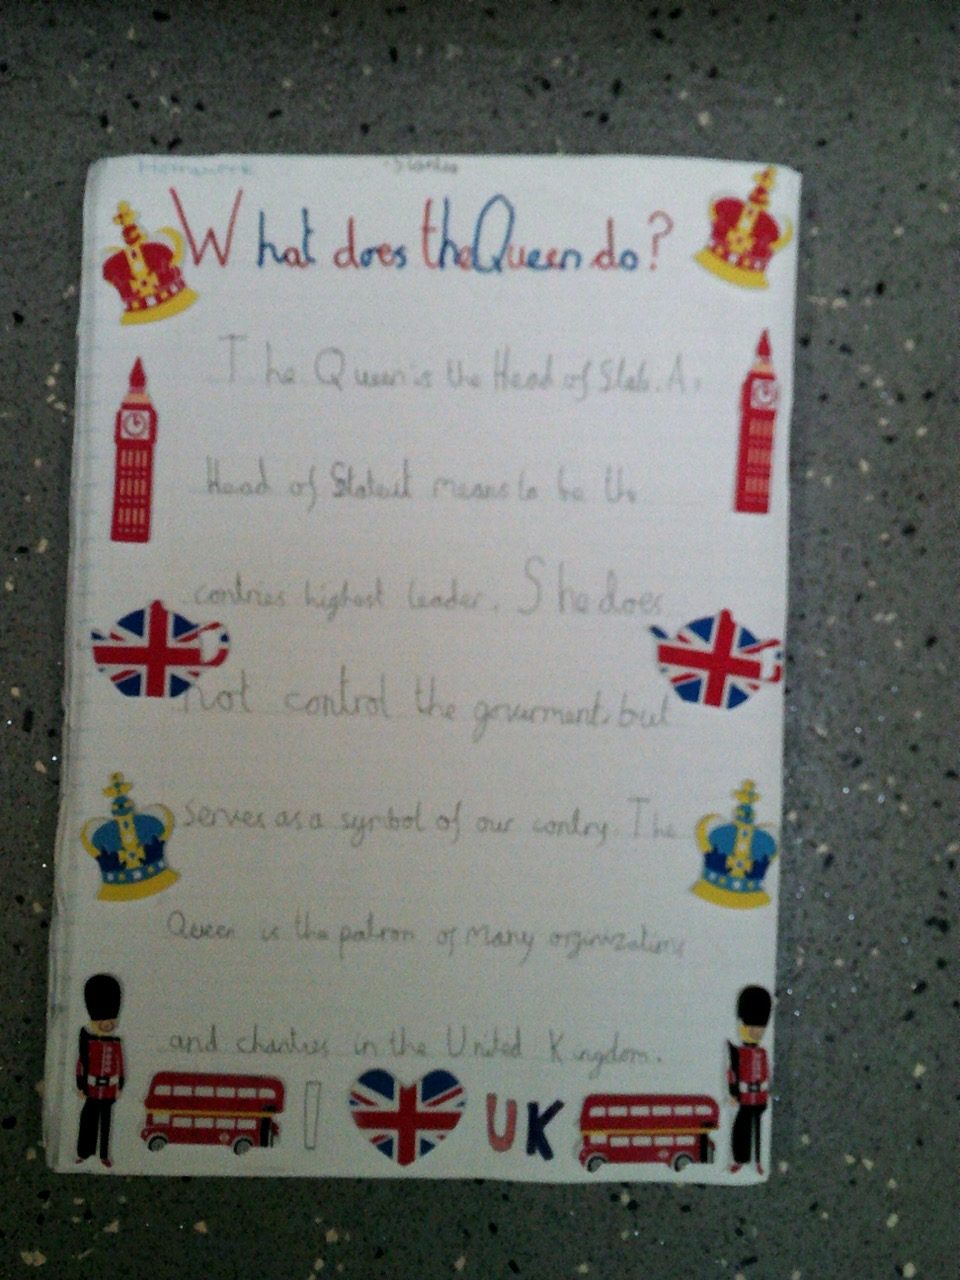 Homework
What does the Queen do?
The Queen is the Head of State. As
Head of State it means to be the
contries highest leader. She does
not control the goverment, but
serves as a symbol of our contry. The
Queen is the patron of many orginizations
and charities in the United Kingdom.
I UK